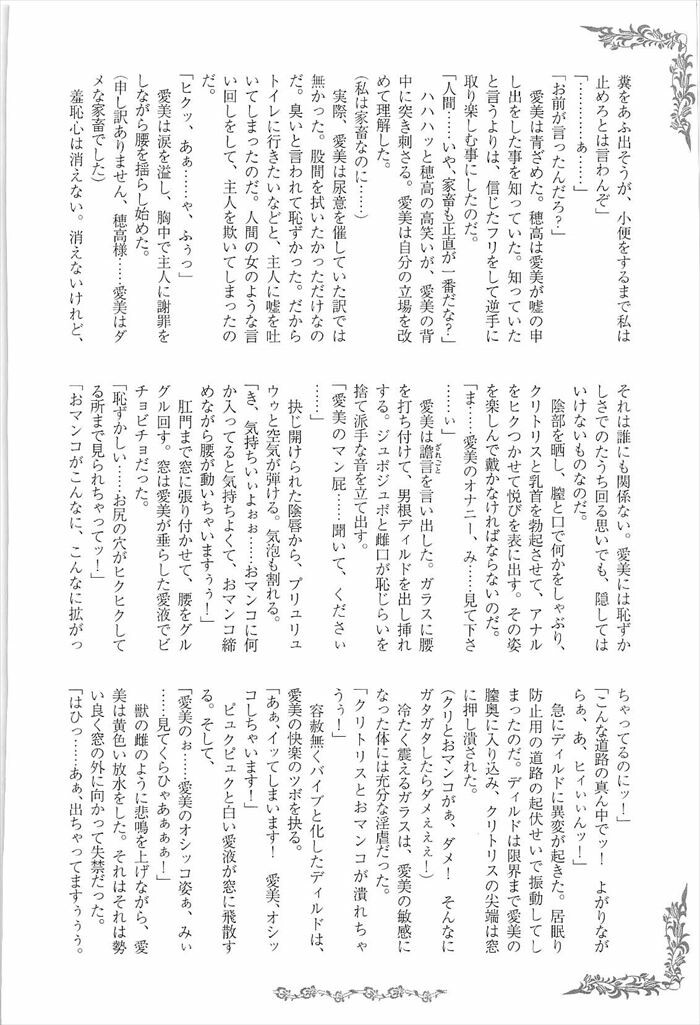 糞をあふ出そうが、小便をするまで私は
止めろとは言わんぞ」
「………………ぁ……」
「お前が言ったんだろ？」
　愛美は青ざめた。穂高は愛美が嘘の申
し出をした事を知っていた。知っていた
と言うよりは、信じたフリをして逆手に
取り楽しむ事にしたのだ。
「人間……いや、家畜も正直が一番だな？」
　ハハハッと穂高の高笑いが、愛美の背
中に突き刺さる。愛美は自分の立場を改
めて理解した。
(私は家畜なのに……)
　実際、愛美は尿意を催していた訳では
無かった。股間を拭いたかっただけなの
だ。臭いと言われて恥ずかった。だから
トイレに行きたいなどと、主人に嘘を吐
いてしまったのだ。人間の女のような言
い回しをして、主人を欺いてしまったの
だ。
「ヒクッ、あぁ……や、ふぅっ」
　愛美は涙を溢し、胸中で主人に謝罪を
しながら腰を揺らし始めた。
(申し訳ありません、穂高様……愛美はダ
メな家畜でした)
　羞恥心は消えない。消えないけれど、
それは誰にも関係ない。愛美には恥ずか
しさでのたうち回る思いでも、隠しては
いけないものなのだ。
　陰部を晒し、膣と口で何かをしゃぶり、
クリトリスと乳首を勃起させて、アナル
をヒクつかせて悦びを表に出す。その姿
を楽しんで戴かなければならないのだ。
「ま……愛美のオナニー、み……見て下さ
……ぃ」
　愛美は譫言を言い出した。ガラスに腰
を打ち付けて、男根ディルドを出し挿れ
する。ジュポジュポと雌口が恥じらいを
捨て派手な音を立て出す。
「愛美のマン屁……聞いて、くださぃ
……」
　抉じ開けられた陰唇から、ブリュリュ
ウゥと空気が弾ける。気泡も割れる。
「き、気持ちいぃよぉぉ……おマンコに何
か入ってると気持ちよくて、おマンコ締
めながら腰が動いちゃいますぅぅ！」
　肛門まで窓に張り付かせて、腰をグル
グル回す。窓は愛美が垂らした愛液でビ
チョビチョだった。
「恥ずかしい……お尻の穴がヒクヒクして
る所まで見られちゃってッ！」
「おマンコがこんなに、こんなに拡がっ
ちゃってるのにッ！」
「こんな道路の真ん中でッ！　よがりなが
らぁ、あ、ヒィぃぃんッ！」
　急にディルドに異変が起きた。居眠り
防止用の道路の起伏せいで振動してし
まったのだ。ディルドは限界まで愛美の
膣奥に入り込み、クリトリスの尖端は窓
に押し潰された。
(クリとおマンコがぁ、ダメ！　そんなに
ガタガタしたらダメぇぇぇ！)
　冷たく震えるガラスは、愛美の敏感に
なった体には充分な淫虐だった。
「クリトリスとおマンコが潰れちゃ
うぅ！」
　容赦無くバイブと化したディルドは、
愛美の快楽のツボを抉る。
「あぁ、イッてしまいます！　愛美、オシッ
コしちゃいます！」
　ピュクピュクと白い愛液が窓に飛散す
る。そして、
「愛美のぉ……愛美のオシッコ姿ぁ、みぃ
……見てくらひゃあぁぁぁ！」
　獣の雌のように悲鳴を上げながら、愛
美は黄色い放水をした。それはそれは勢
い良く窓の外に向かって失禁だった。
「はひっ……あぁ、出ちゃってますぅぅぅ。